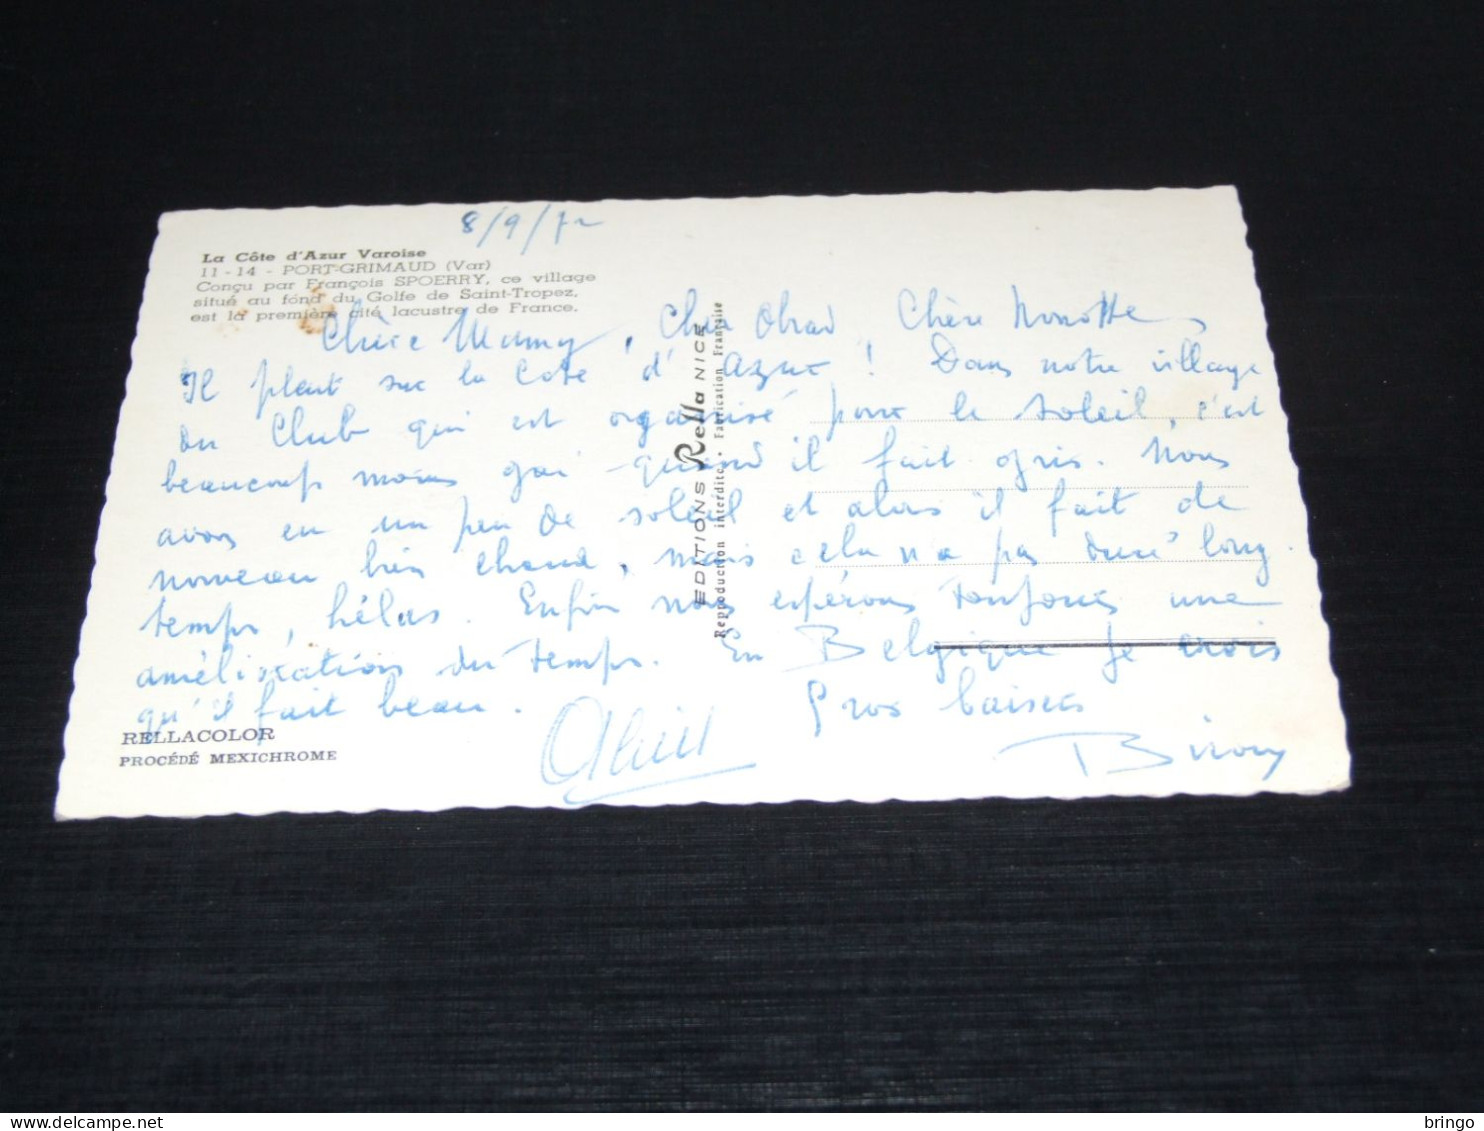 8/9/72
La Côte d'Azur Varoise
11-14 - PORT-GRIMAUD (Var)
Conçu par François SPOERRY, ce village
situé au fond du Golfe de Saint-Tropez,
est la première cité lacustre de France.
Chère Mamy, Cher Chère
Il pleut sur la Côte d'Azur ! Dans notre village
du Club qui est organisé pour le soleil, c'est
beaucoup moins gai quand il fait gris. Nous
avons eu un peu de soleil et alors il fait de
nouveau bien chaud, mais cela n'a pas duré long-
temps, hélas. Enfin nous espérons toujours une
amélioration du temps. En Belgique je crois
qu'il fait beau. Gros baisers
EDITIONS Rella NICE
Reproduction interdite • Fabrication Française
RELLACOLOR
PROCÉDÉ MEXICHROME
bringo